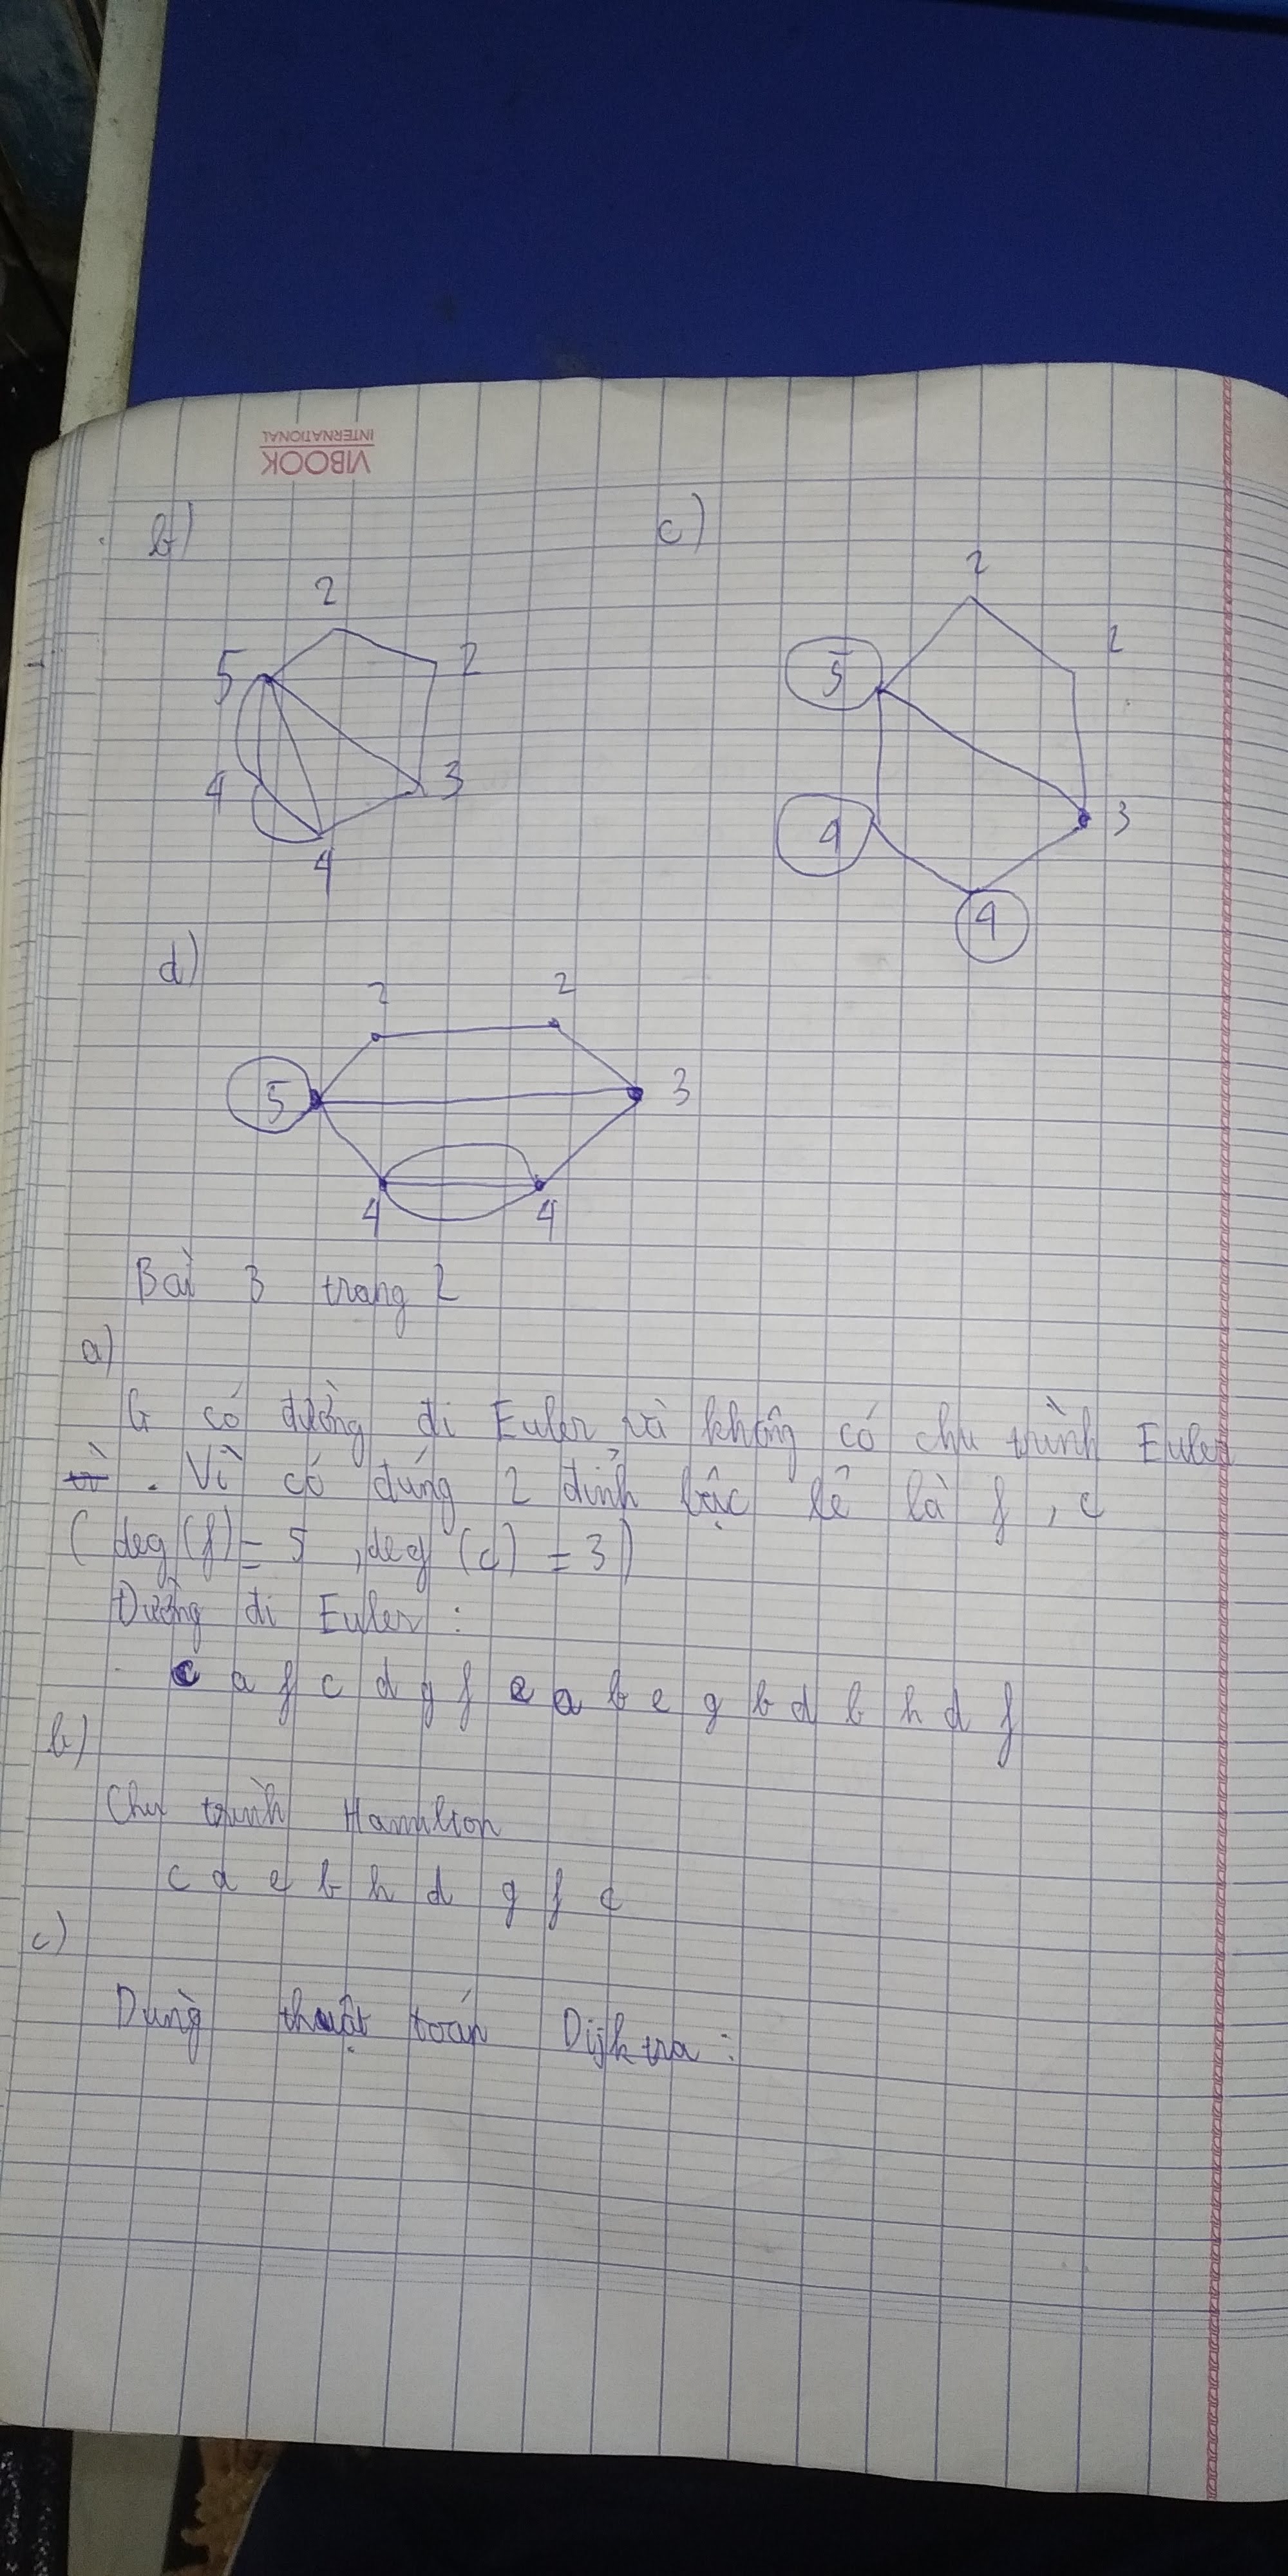 VIBOOK
INTERNATIONAL
b)
c)
2
5
2
4
3
4
2
2
5
3
4
4
d)
2
2
5
3
4
4
Bài 3 trang 2
a)
G có đường đi Euler và không có chu trình Euler
. Vì có đúng 2 đỉnh bậc lẻ là f, c
(deg(f) = 5, deg(c) = 3)
Đường đi Euler:
c a f c d g f e a b e g b d b h d f
b)
Chu trình Hamilton
c a e b h d g f c
c)
Dùng thuật toán Dijktra: